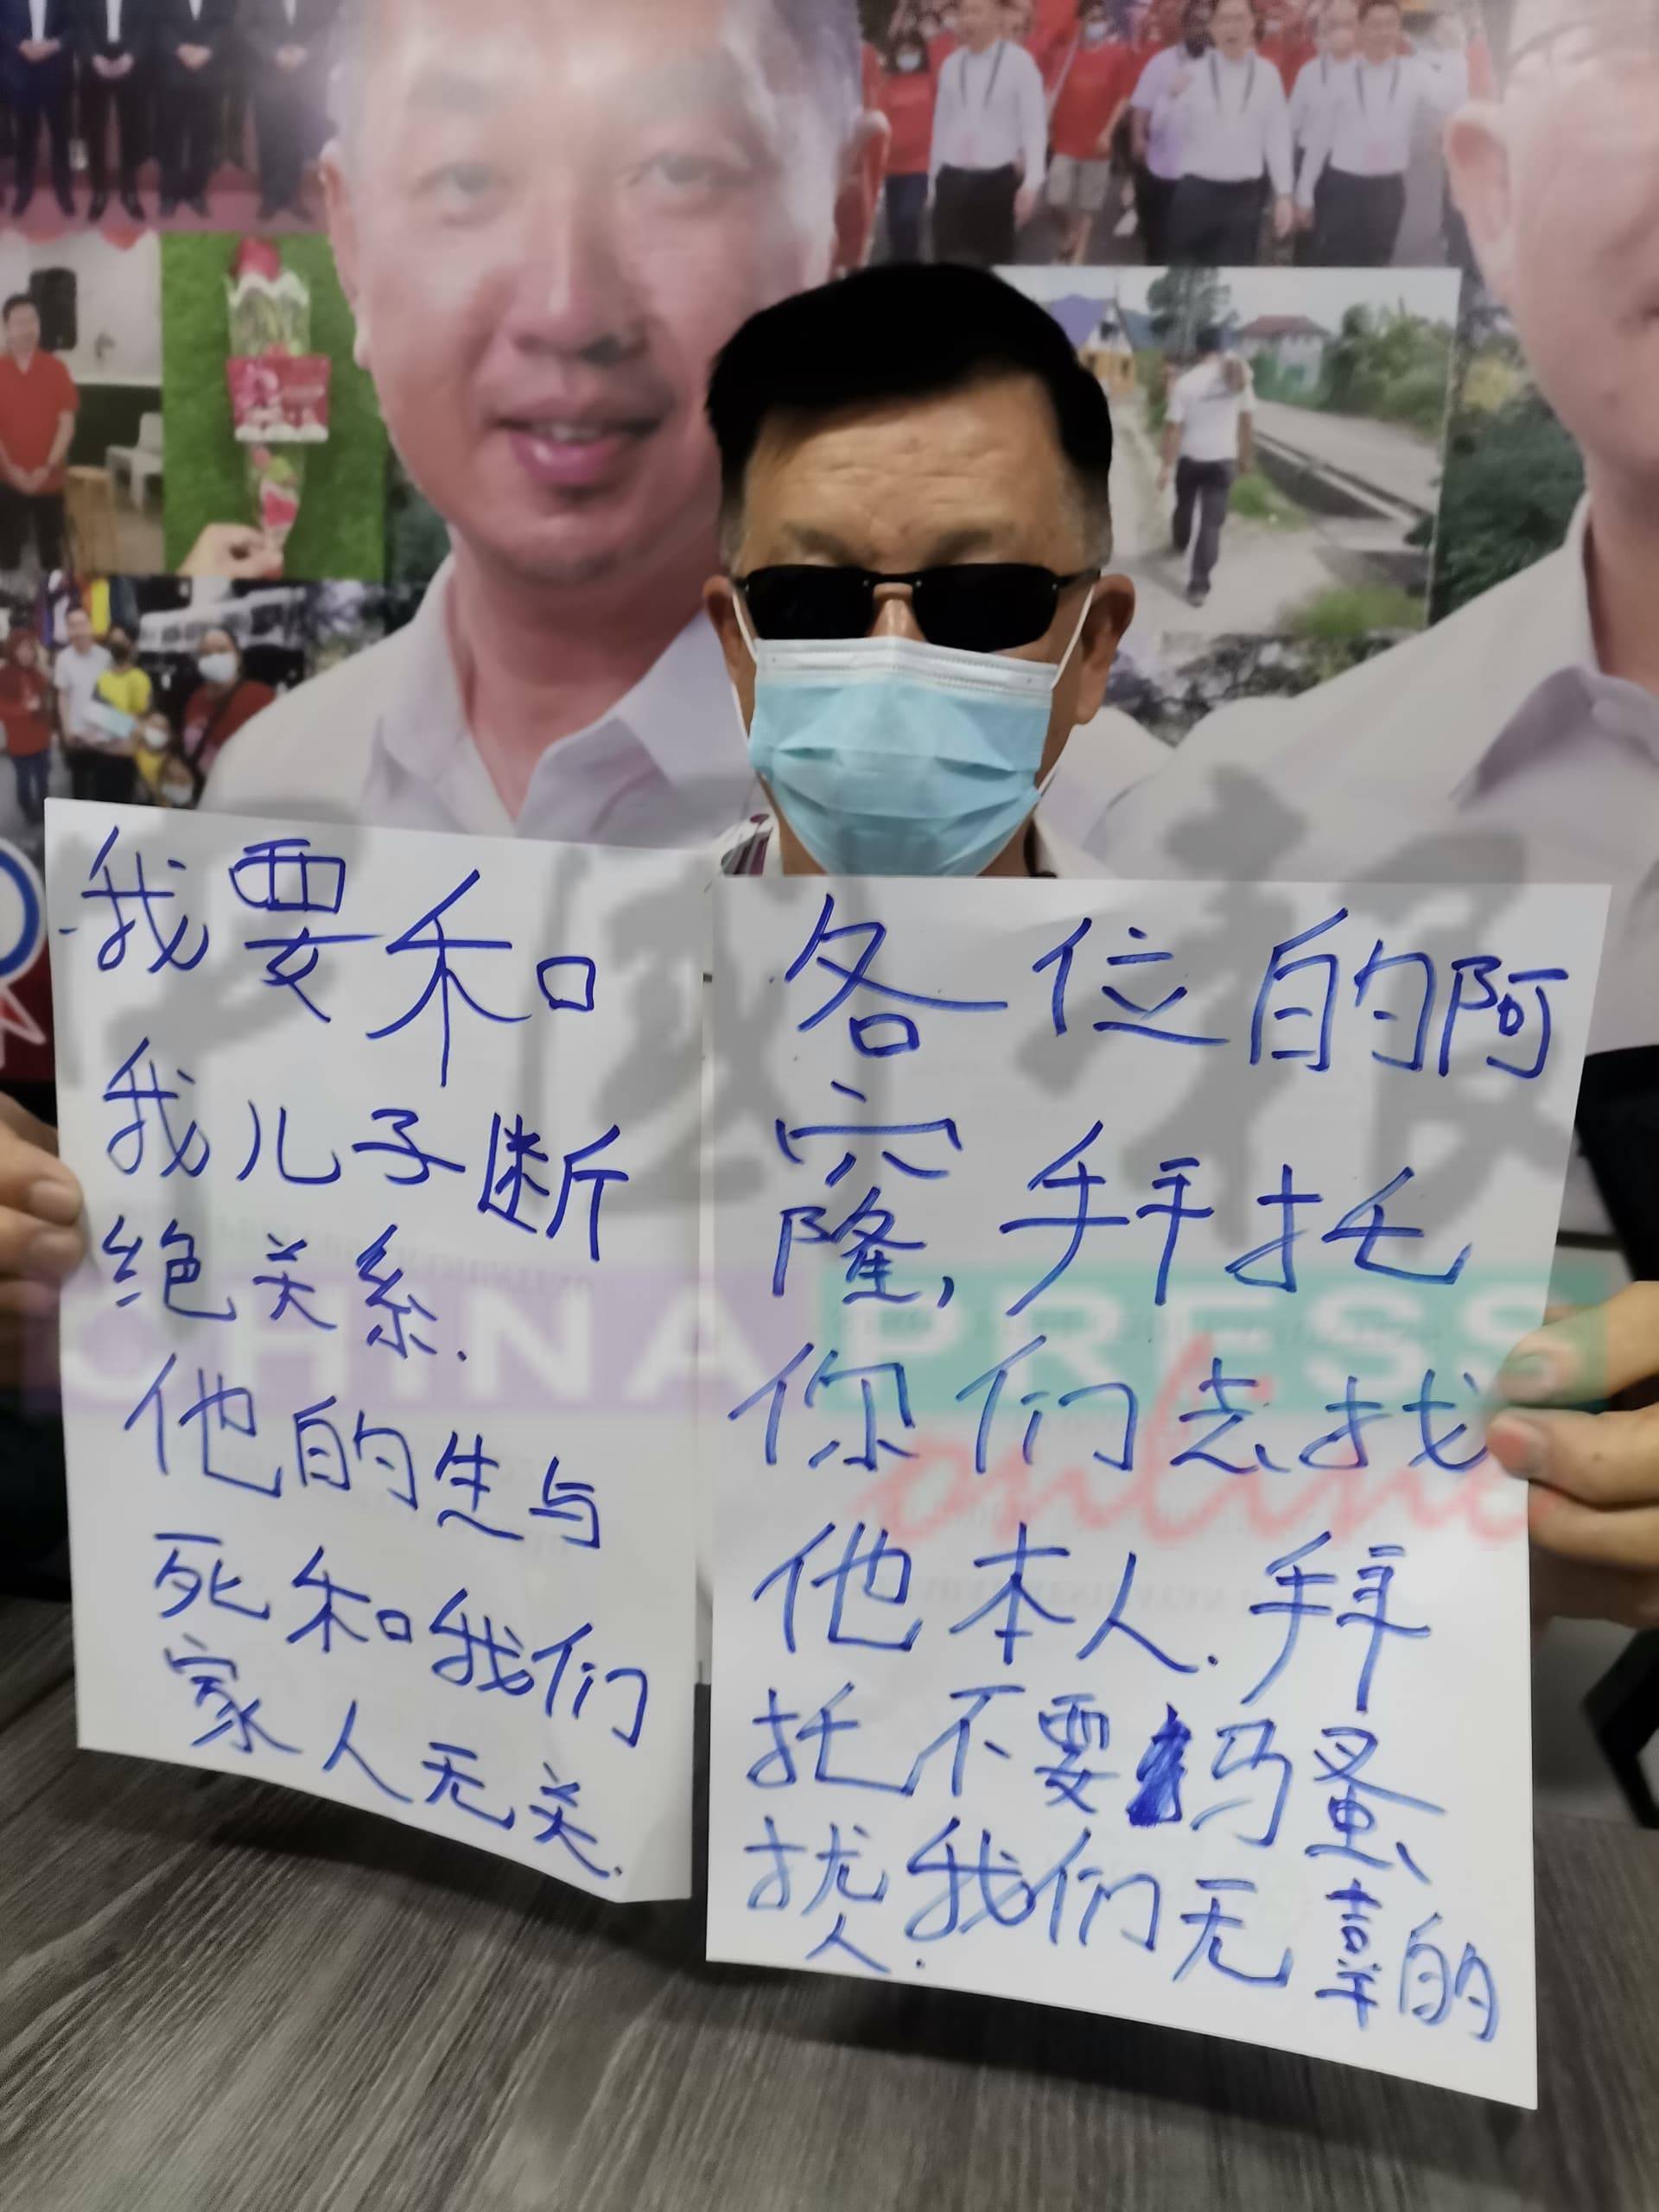 我要和
我儿子断
绝关系.
他的生与
死和我们
家人无关.
各位的阿
窿,拜托
你们去找
他本人.拜
托不要 蚤
扰人.我们无辜的
中国报
CHINA PRESS
online